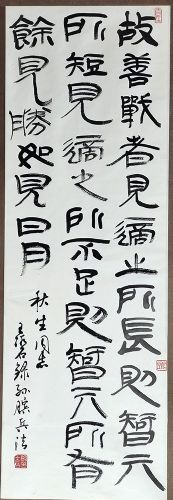 故善戰者見適之所長則智亓
所短見適之所不足則智亓所有
餘見勝如見日月
秋生同志
錄孫臏兵法